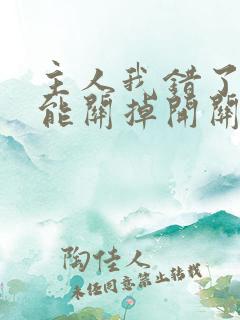 主人我错了
能關掉開關
陶佳人
未经同意禁止转载